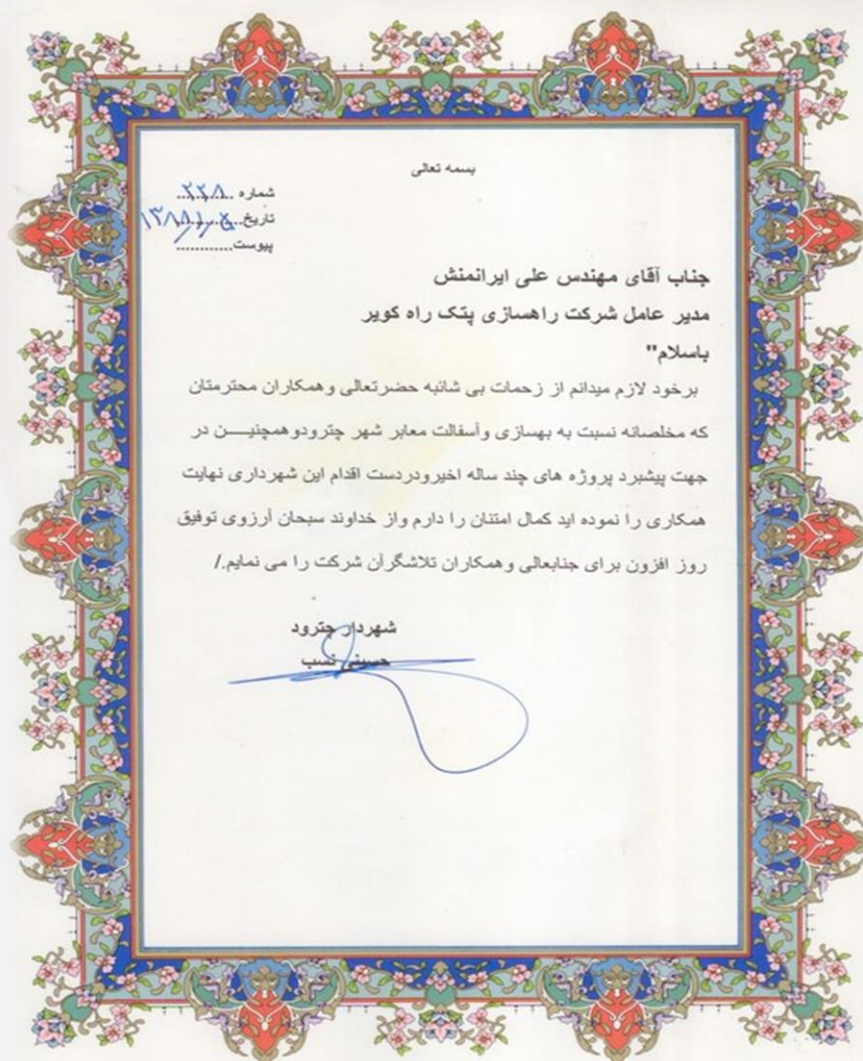 بسمه تعالی
شماره ۲۲۸
تاریخ ۱۳۸۸/۱/۵
پیوست............
جناب آقای مهندس علی ایرانمنش
مدیر عامل شرکت راهسازی پتک راه کویر
باسلام"
برخود لازم میدانم از زحمات بی شائبه حضرتعالی وهمکاران محترمتان
که مخلصانه نسبت به بهسازی وآسفالت معابر شهر چترودوهمچنیـــن در
جهت پیشبرد پروژه های چند ساله اخیرودردست اقدام این شهرداری نهایت
همکاری را نموده اید کمال امتنان را دارم واز خداوند سبحان آرزوی توفیق
روز افزون برای جنابعالی وهمکاران تلاشگرآن شرکت را می نمایم./
شهردار چترود
حسینی نسب